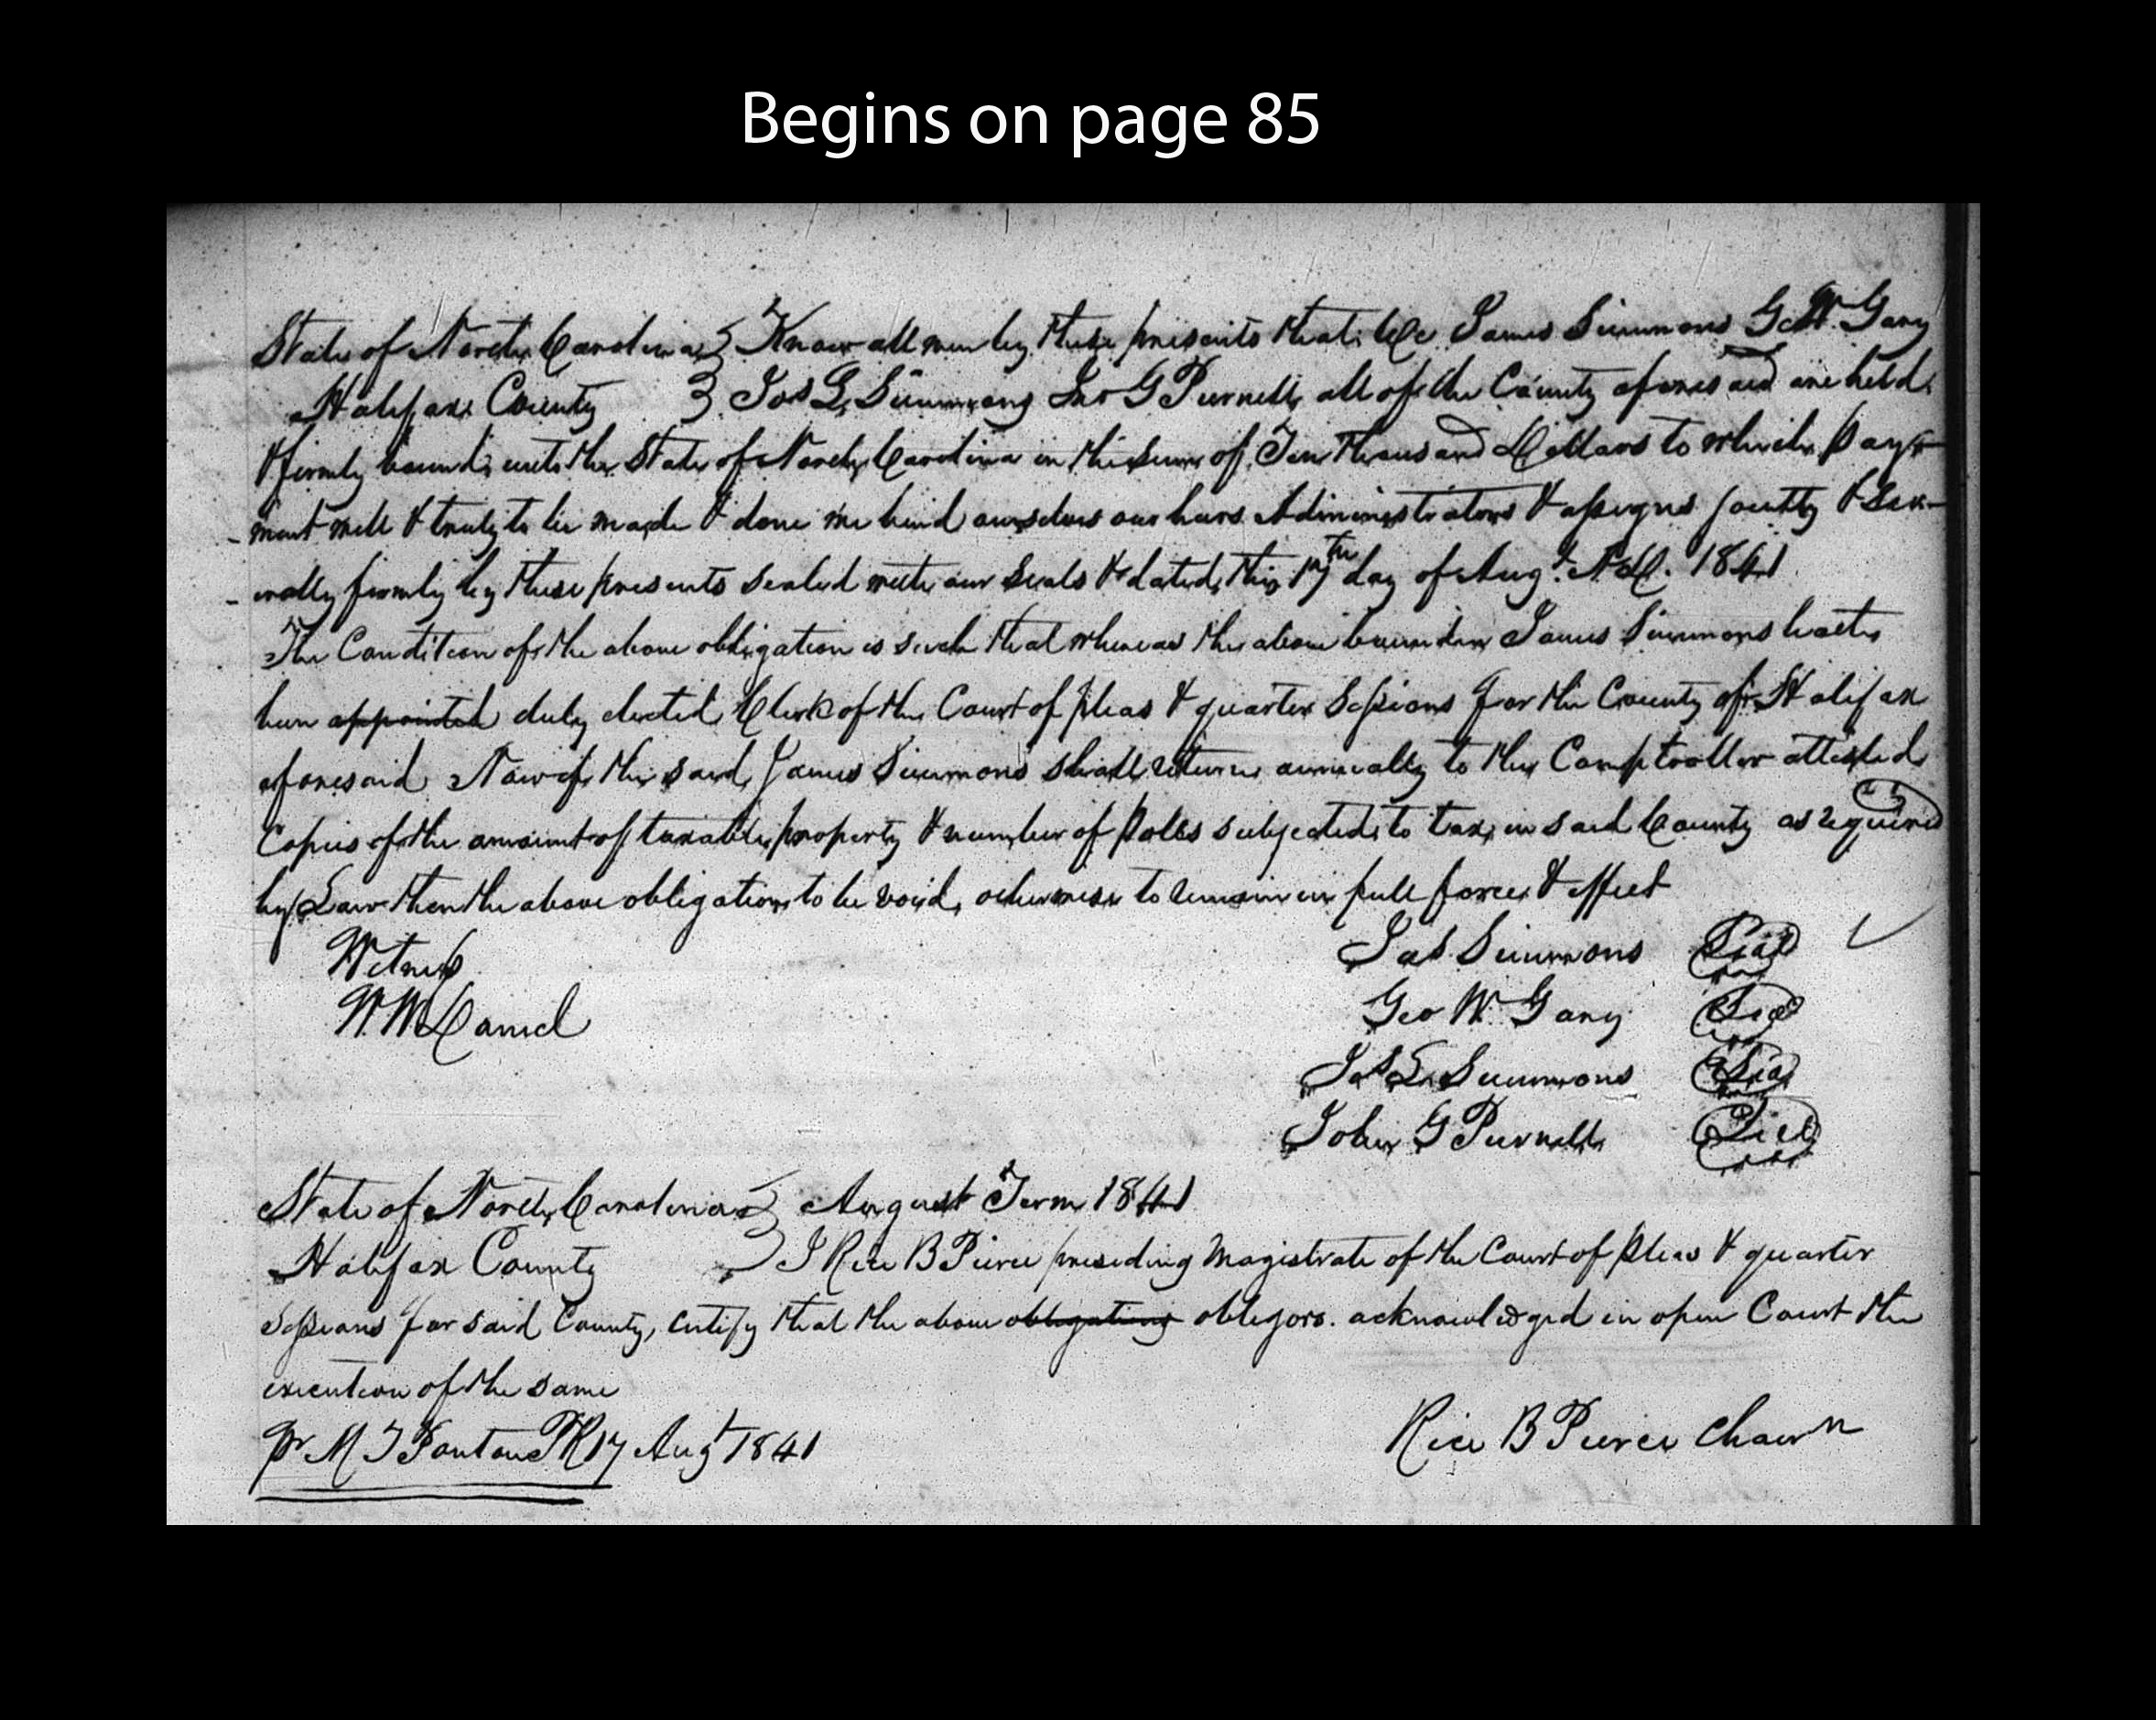 Begins on page 85
State of North Carolina } Know all men by these presents that We James Simmons Geo W. Gary
Halifax County } Jos L Simmons Jno G Purnell all of the County aforesaid are held
& firmly bound unto the State of North Carolina in the sum of Ten thousand Dollars to which pay-
-ment well & truly to be made & done we bind ourselves our heirs Administrators & assigns jointly & sev-
-erally firmly by these presents sealed with our Seals & dated this 17th day of Augt. A.D. 1841
The Condition of the above obligation is such that whereas the above bounden James Simmons hath
been appointed duly elected Clerk of the Court of pleas & quarter Sessions for the County of Halifax
aforesaid Now if the said James Simmons shall return annually to the Comptroller attested
Copies of the amount of taxable property & number of Polls subjected to tax in said County as required
by Law then the above obligation to be void, otherwise to remain in full force & effect
Witness Jas Simmons Seal
W. W Daniel Geo W. Gary Seal
Jos L Simmons Seal
John G Purnell Seal
State of North Carolina } August Term 1841
Halifax County } I Rice B Pierce presiding Magistrate of the Court of pleas & quarter
Sessions for said County, certify that the above obligations obligors. acknowledged in open Court the
execution of the same
pr M T Ponton PR 17 Augt 1841 Rice B Pierce Chairn